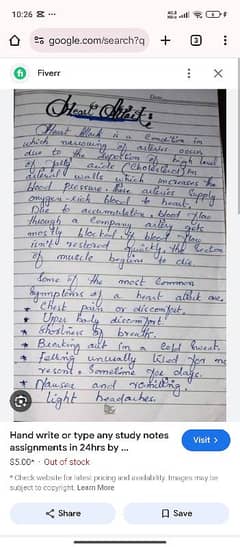 10:26
google.com/search?q
3
Fiverr
Heart Attack:
Heart Attack is a condition in
which narrowing of arteries occur
due to the deposition of high level
of fatty acids (cholesterol) in
arterial walls which increases the
blood pressure. these arteries supply
oxygen-rich blood to heart.
Due to accumulation, blood flow
through a coronary artery gets
mostly blocked. if blood flow
isn't restored quickly, the section
of muscle begins to die.
Some of the most common
symptoms of a heart attack are,
* Chest pain or discomfort.
* Upper body discomfort.
* Shortness of breath.
* Breaking out in a cold sweat.
* felling unusually tired for no
reason. Sometime for days.
* Nausea and vomiting.
light headaches.
Hand write or type any study notes
assignments in 24hrs by ...
$5.00* · Out of stock
Visit >
* Check website for latest pricing and availability. Images may be
subject to copyright. Learn More
Share
Save